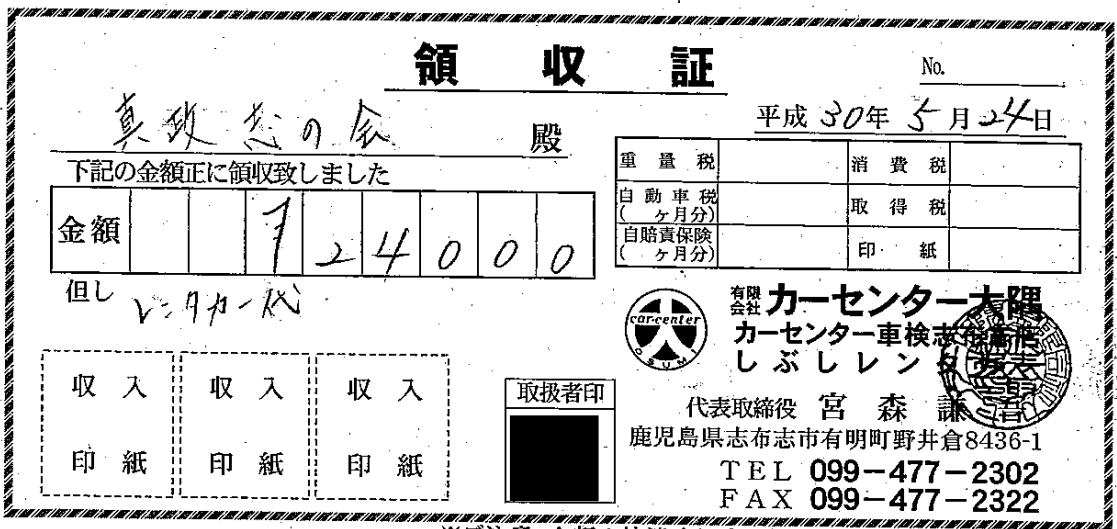 領収証
No.
真政志の会 殿
平成30年5月24日
下記の金額正に領収致しました
金額 ¥24000
但し レンタカー代
重量税 消費税
自動車税 (ヶ月分) 取得税
自賠責保険 (ヶ月分) 印紙
収入印紙 収入印紙 収入印紙
取扱者印
car-center
OSUMI
有限会社 カーセンター大隅
カーセンター車検志布志店
しぶしレンタカー
代表取締役 宮森謙吾
鹿児島県志布志市有明町野井倉8436-1
TEL 099-477-2302
FAX 099-477-2322